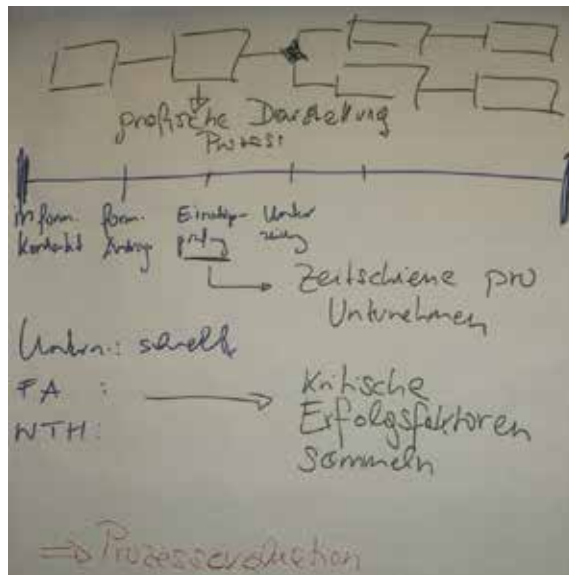 grafische Darstellung
Prozess
inform. form. Einstiegs- Unter
Kontakt Antrag prüfung zeichg
Zeitschiene pro
Unternehmen
Untern.: schnell
FA :
WTH:
Kritische
Erfolgsfaktoren
sammeln
=> Prozessevaluation